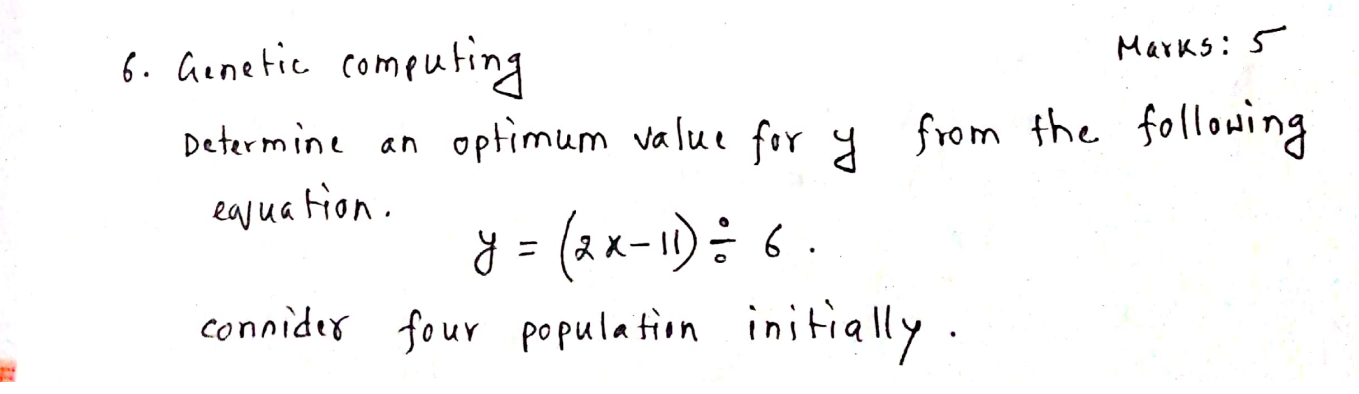 6. Genetic computing Marks: 5
Determine an optimum value for y from the following
equation.
y = (2x-11) ÷ 6 .
connider four population initially .